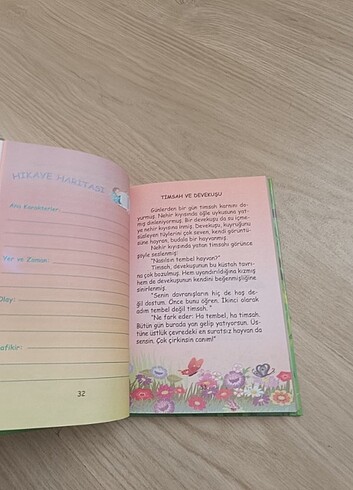 HİKAYE HARİTASI
Ana Karakterler:
Yer ve Zaman:
Olay:
32
TİMSAH VE DEVEKUŞU
Günlerden bir gün timsah karnını do-
yurmuş, Nehir kıyısında öğle uykusuna yat-
mış dinleniyormuş. Bir devekuşu da su içme-
ye nehir kıyısına inmiş. Devekuşu, kuyruğunu
süsleyen tüylerini çok seven, kendi görüntü-
süne hayran, budala bir hayvanmış.
Nehir kıyısında yatan timsahı görünce
şöyle seslenmiş:
"Nasılsın tembel hayvan?"
Timsah, devekuşunun bu küstah tavrı-
na çok bozulmuş. Hem uyandırıldığına kızmış
hem de devekuşunun kendini beğenmişliğine
sinirlenmiş.
"Senin davranışların hiç de hoş de-
ğil dostum. Önce bunu öğren. İkinci olarak
adım tembel değil timsah. "
"Ne fark eder: Ha tembel, ha timsah.
Bütün gün burada yan gelip yatıyorsun. Üs-
tüne üstlük çevredeki en suratsız hayvan da
sensin. Çok çirkinsin canım!"